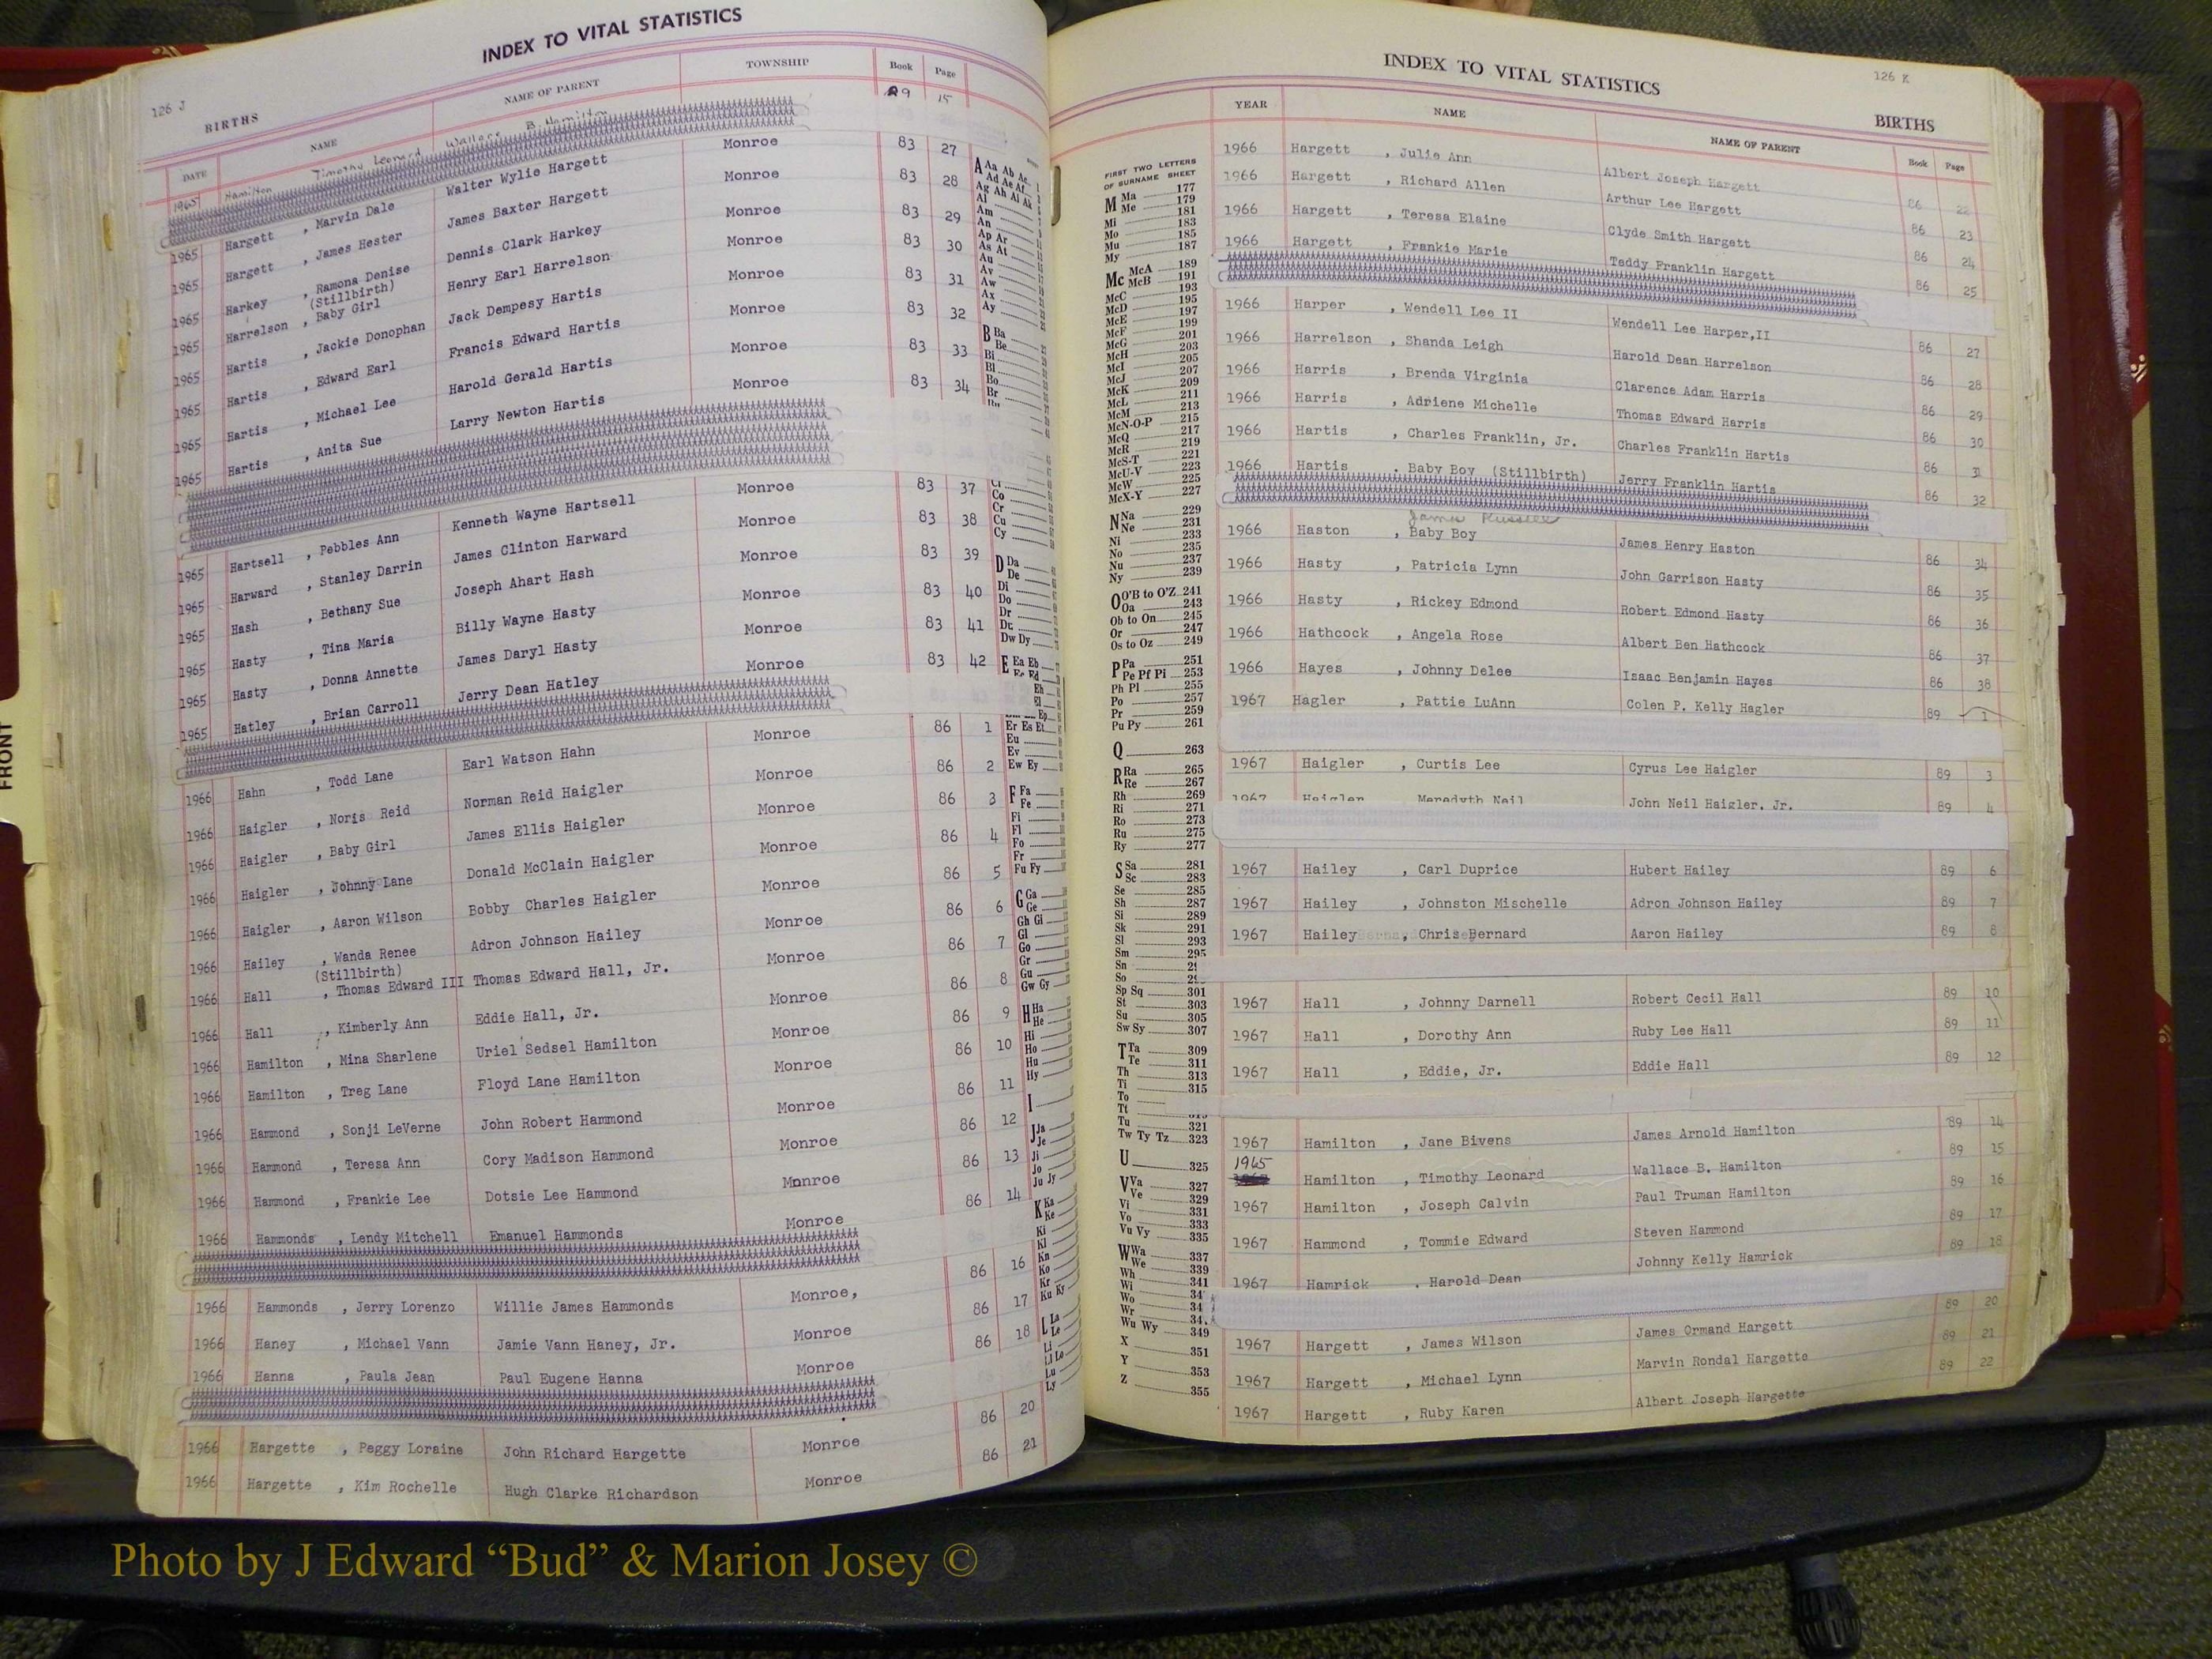 INDEX TO VITAL STATISTICS
126 J
BIRTHS
DATE NAME NAME OF PARENT TOWNSHIP Book Page
1965 Hamilton Timothy Leonard Wallace B. Hamilton 89 15
1965 Hargett , Marvin Dale Walter Wylie Hargett Monroe 83 27
1965 Hargett , James Hester James Baxter Hargett Monroe 83 28
1965 Harkey , Ramona Denise Dennis Clark Harkey Monroe 83 29
(Stillbirth)
1965 Harrelson , Baby Girl Henry Earl Harrelson Monroe 83 30
1965 Hartis , Jackie Donophan Jack Dempesy Hartis Monroe 83 31
1965 Hartis , Edward Earl Francis Edward Hartis Monroe 83 32
1965 Hartis , Michael Lee Harold Gerald Hartis Monroe 83 33
1965 Hartis , Anita Sue Larry Newton Hartis Monroe 83 34
1965 Hartsell , Pebbles Ann Kenneth Wayne Hartsell Monroe 83 37
1965 Harward , Stanley Darrin James Clinton Harward Monroe 83 38
1965 Hash , Bethany Sue Joseph Ahart Hash Monroe 83 39
1965 Hasty , Tina Maria Billy Wayne Hasty Monroe 83 40
1965 Hasty , Donna Annette James Daryl Hasty Monroe 83 41
1965 Hatley , Brian Carroll Jerry Dean Hatley Monroe 83 42
1966 Hahn , Todd Lane Earl Watson Hahn Monroe 86 1
1966 Haigler , Noris Reid Norman Reid Haigler Monroe 86 2
1966 Haigler , Baby Girl James Ellis Haigler Monroe 86 3
1966 Haigler , Johnny Lane Donald McClain Haigler Monroe 86 4
1966 Haigler , Aaron Wilson Bobby Charles Haigler Monroe 86 5
1966 Hailey , Wanda Renee Adron Johnson Hailey Monroe 86 6
(Stillbirth)
1966 Hall , Thomas Edward III Thomas Edward Hall, Jr. Monroe 86 7
1966 Hall , Kimberly Ann Eddie Hall, Jr. Monroe 86 8
1966 Hamilton , Mina Sharlene Uriel Sedsel Hamilton Monroe 86 9
1966 Hamilton , Treg Lane Floyd Lane Hamilton Monroe 86 10
1966 Hammond , Sonji LeVerne John Robert Hammond Monroe 86 11
1966 Hammond , Teresa Ann Cory Madison Hammond Monroe 86 12
1966 Hammond , Frankie Lee Dotsie Lee Hammond Monroe 86 13
1966 Hammonds , Lendy Mitchell Emanuel Hammonds Monroe 86 14
1966 Hammonds , Jerry Lorenzo Willie James Hammonds Monroe, 86 16
1966 Haney , Michael Vann Jamie Vann Haney, Jr. Monroe 86 17
1966 Hanna , Paula Jean Paul Eugene Hanna Monroe 86 18
1966 Hargette , Peggy Loraine John Richard Hargette Monroe 86 20
1966 Hargette , Kim Rochelle Hugh Clarke Richardson Monroe 86 21
A Aa Ab Ae
Ad Ae Af
Ag Ah Ai Ak
Al
Am
An
Ap Ar
As At
Au
Av
Aw
Ax
Ay
B Ba
Be
Bi
Bl
Bo
Br
Co
Cr
Cu
Cy
D Da
De
Di
Do
Dr
Du
Dw Dy
E Ea Eb
Eh
El
Ep
Er Es Et
Eu
Ev
Ew Ey
F Fa
Fe
Fi
Fl
Fo
Fr
Fu Fy
G Ga
Ge
Gh Gi
Gl
Go
Gr
Gu
Gw Gy
H Ha
He
Hi
Ho
Hu
Hy
I
J Ja
Je
Ji
Jo
Ju Jy
K Ka
Ke
Ki
Kl
Kn
Ko
Kr
Ku Ky
L La
Le
Li
Lu
Ly
INDEX TO VITAL STATISTICS
126 K
BIRTHS
YEAR NAME NAME OF PARENT Book Page
1966 Hargett , Julie Ann Albert Joseph Hargett 86 22
1966 Hargett , Richard Allen Arthur Lee Hargett 86 23
1966 Hargett , Teresa Elaine Clyde Smith Hargett 86 24
1966 Hargett , Frankie Marie Teddy Franklin Hargett 86 25
1966 Harper , Wendell Lee II Wendell Lee Harper,II 86 27
1966 Harrelson , Shanda Leigh Harold Dean Harrelson 86 28
1966 Harris , Brenda Virginia Clarence Adam Harris 86 29
1966 Harris , Adriene Michelle Thomas Edward Harris 86 30
1966 Hartis , Charles Franklin, Jr. Charles Franklin Hartis 86 31
1966 Hartis , Baby Boy (Stillbirth) Jerry Franklin Hartis 86 32
James Russell
1966 Haston , Baby Boy James Henry Haston 86 34
1966 Hasty , Patricia Lynn John Garrison Hasty 86 35
1966 Hasty , Rickey Edmond Robert Edmond Hasty 86 36
1966 Hathcock , Angela Rose Albert Ben Hathcock 86 37
1966 Hayes , Johnny Delee Isaac Benjamin Hayes 86 38
1967 Hagler , Pattie LuAnn Colen P. Kelly Hagler 89 1
1967 Haigler , Curtis Lee Cyrus Lee Haigler 89 3
1967 Haigler Meredyth Neil John Neil Haigler, Jr. 89 4
1967 Hailey , Carl Duprice Hubert Hailey 89 6
1967 Hailey , Johnston Mischelle Adron Johnson Hailey 89 7
1967 Hailey , Chris Bernard Aaron Hailey 89 8
1967 Hall , Johnny Darnell Robert Cecil Hall 89 10
1967 Hall , Dorothy Ann Ruby Lee Hall 89 11
1967 Hall , Eddie, Jr. Eddie Hall 89 12
1967 Hamilton , Jane Bivens James Arnold Hamilton 89 14
1965 Hamilton , Timothy Leonard Wallace B. Hamilton 89 15
1967 Hamilton , Joseph Calvin Paul Truman Hamilton 89 16
1967 Hammond , Tommie Edward Steven Hammond 89 17
1967 Hamrick , Harold Dean Johnny Kelly Hamrick 89 18
1967 Hargett , James Wilson James Ormand Hargett 89 20
1967 Hargett , Michael Lynn Marvin Rondal Hargette 89 21
1967 Hargett , Ruby Karen Albert Joseph Hargette 89 22
FIRST TWO LETTERS
OF SURNAME SHEET
M Ma 177
Me 179
Mi 181
Mo 183
Mu 185
My 187
Mc McA 189
McB 191
McC 193
McD 195
McE 197
McF 199
McG 201
McH 203
McI 205
McJ 207
McK 209
McL 211
McM 213
McN-O-P 215
McQ 217
McR 219
McS-T 221
McU-V 223
McW 225
McX-Y 227
N Na 229
Ne 231
Ni 233
No 235
Nu 237
Ny 239
O O'B to O'Z 241
Oa 243
Ob to On 245
Or 247
Os to Oz 249
P Pa 251
Pe Pf Pi 253
Ph Pl 255
Po 257
Pr 259
Pu Py 261
Q 263
R Ra 265
Re 267
Rh 269
Ri 271
Ro 273
Ru 275
Ry 277
S Sa 281
Sc 283
Se 285
Sh 287
Si 289
Sk 291
Sl 293
Sm 295
Sn
So
Sp Sq 301
St 303
Su 305
Sw Sy 307
T Ta 309
Te 311
Th 313
Ti 315
To
Tt
Tu 321
Tw Ty Tz 323
U 325
V Va 327
Ve 329
Vi 331
Vo 333
Vu Vy 335
W Wa 337
We 339
Wh 341
Wi
Wo
Wr
Wu Wy 349
X 351
Y 353
Z 355
FRONT
Photo by J Edward “Bud” & Marion Josey ©